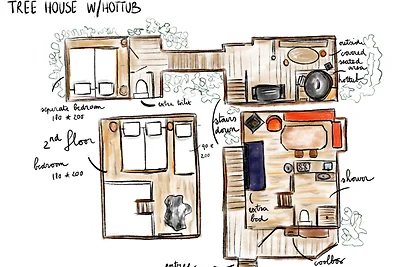 TREE HOUSE W/HOTTUB
outside
covered
seated
area
hottub
seperate bedroom
180 x 200
extra toilet
stairs
down
2nd floor
bedroom
180 x 200
90 x
200
shower
extra
bed
entree
coolbox